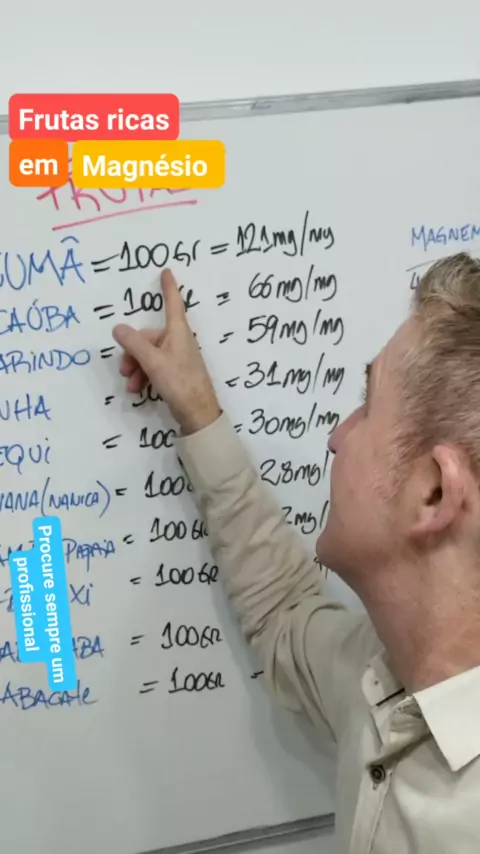 Frutas ricas
em Magnésio
FRUTAS
UMÃ = 100Gr = 121mg/mg
AÚBA = 100Gr = 66mg/mg
ARINDO = = 59mg/mg
NHA = = 31mg/mg
EQUI = 100 = 30mg/mg
NANA (NANICA) = 100G 28mg/
PAPAIA = 100GR mg/
XI = 100GR
ABA = 100GR
ABACATE = 100GR =
MAGNE
Procure sempre um
profissional